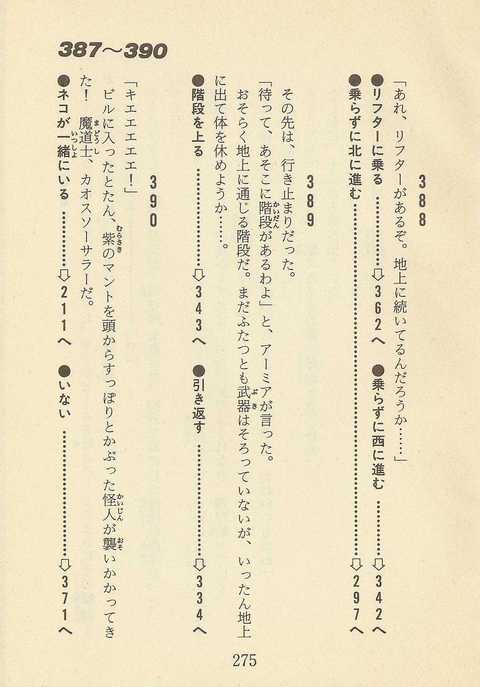 387〜390
388
「あれ、リフターがあるぞ。地上に続いてるんだろうか……」
●リフターに乗る…………⇨362へ　●乗らずに西に進む…………⇨342へ
●乗らずに北に進む…………⇨297へ
389
その先は、行き止まりだった。
「待って、あそこに階段があるわよ」と、アーミアが言った。
おそらく地上に通じる階段だ。まだふたつとも武器はそろっていないが、いったん地上
に出て体を休めようか……。
●階段を上る…………⇨343へ　●引き返す…………⇨334へ
390
「キエエエエエ！」
ビルに入ったとたん、紫のマントを頭からすっぽりとかぶった怪人が襲いかかってき
た！　魔道士、カオスソーサラーだ。
●ネコが一緒にいる…………⇨211へ　●いない…………⇨371へ
275